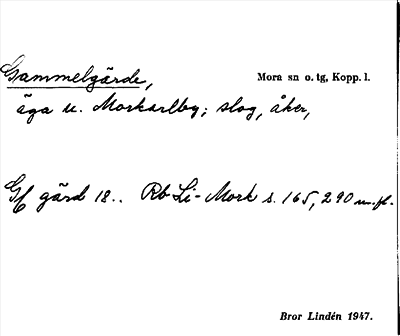 Gammelgärde, Mora sn o. tg, Kopp. l.
äga u. Morkarlby; slog, åker,
Gl gärd 18.. Rb Li-Mork s. 165, 290 m.fl.
Bror Lindén 1947.